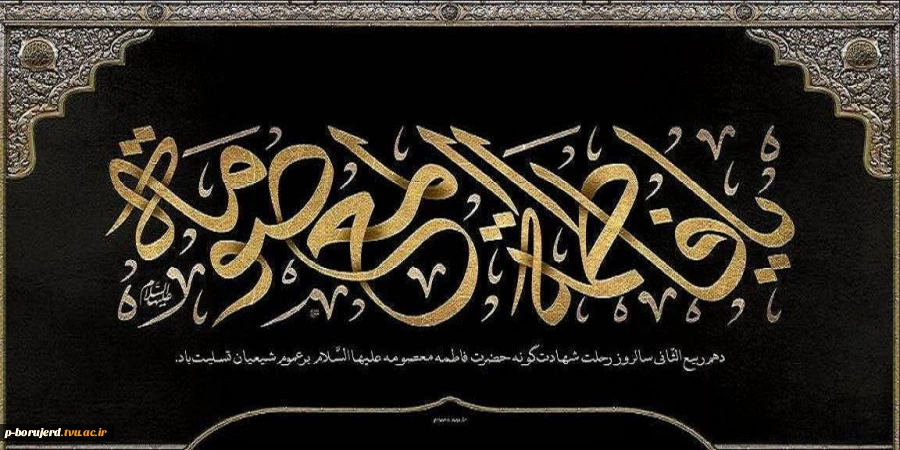 یا فاطمة المعصومة
علیها السلام
دهم ربیع الثّانی سالروز رحلت شهادت‌گونه حضرت فاطمه معصومه علیها السَّلام بر عموم شیعیان تسلیت باد.
p-borujerd.tvu.ac.ir